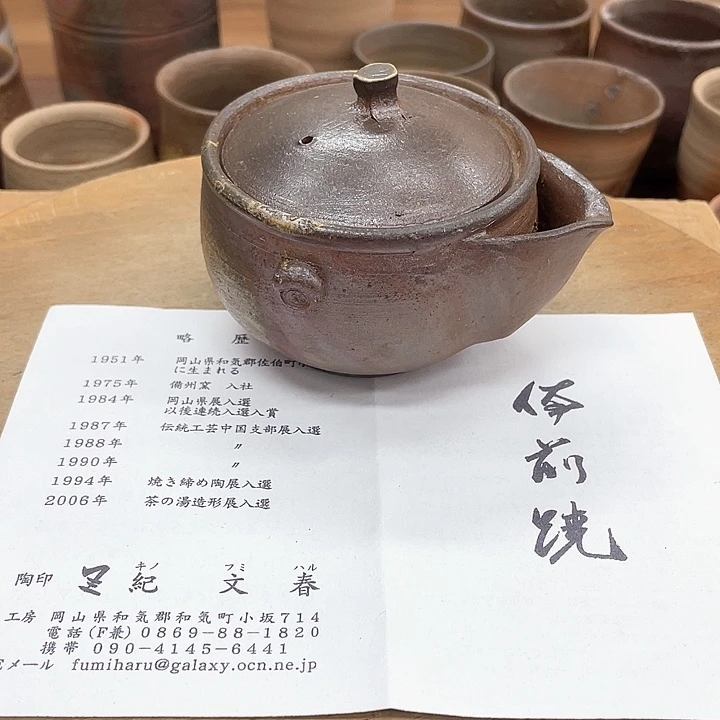 略歴
1951年 岡山県和気郡佐伯町
に生まれる
1975年 備州窯 入社
1984年 岡山県展入選
以後連続入選入賞
1987年 伝統工芸中国支部展入選
1988年 〃
1990年 〃
1994年 焼き締め陶展入選
2006年 茶の湯造形展入選
キノ フミ ハル
陶印 紀 文 春
工房 岡山県和気郡和気町小坂714
電話(F兼)0869-88-1820
携帯 090-4145-6441
Eメール fumiharu@galaxy.ocn.ne.jp
備前焼